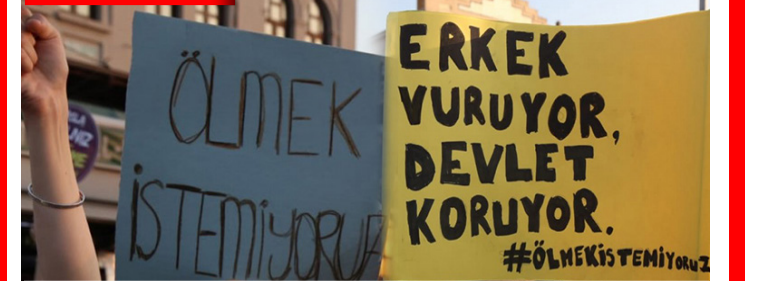 ÖLMEK
İSTEMİYORUZ
ERKEK
VURUYOR,
DEVLET
KORUYOR.
#ÖLMEKİSTEMİYORUZ